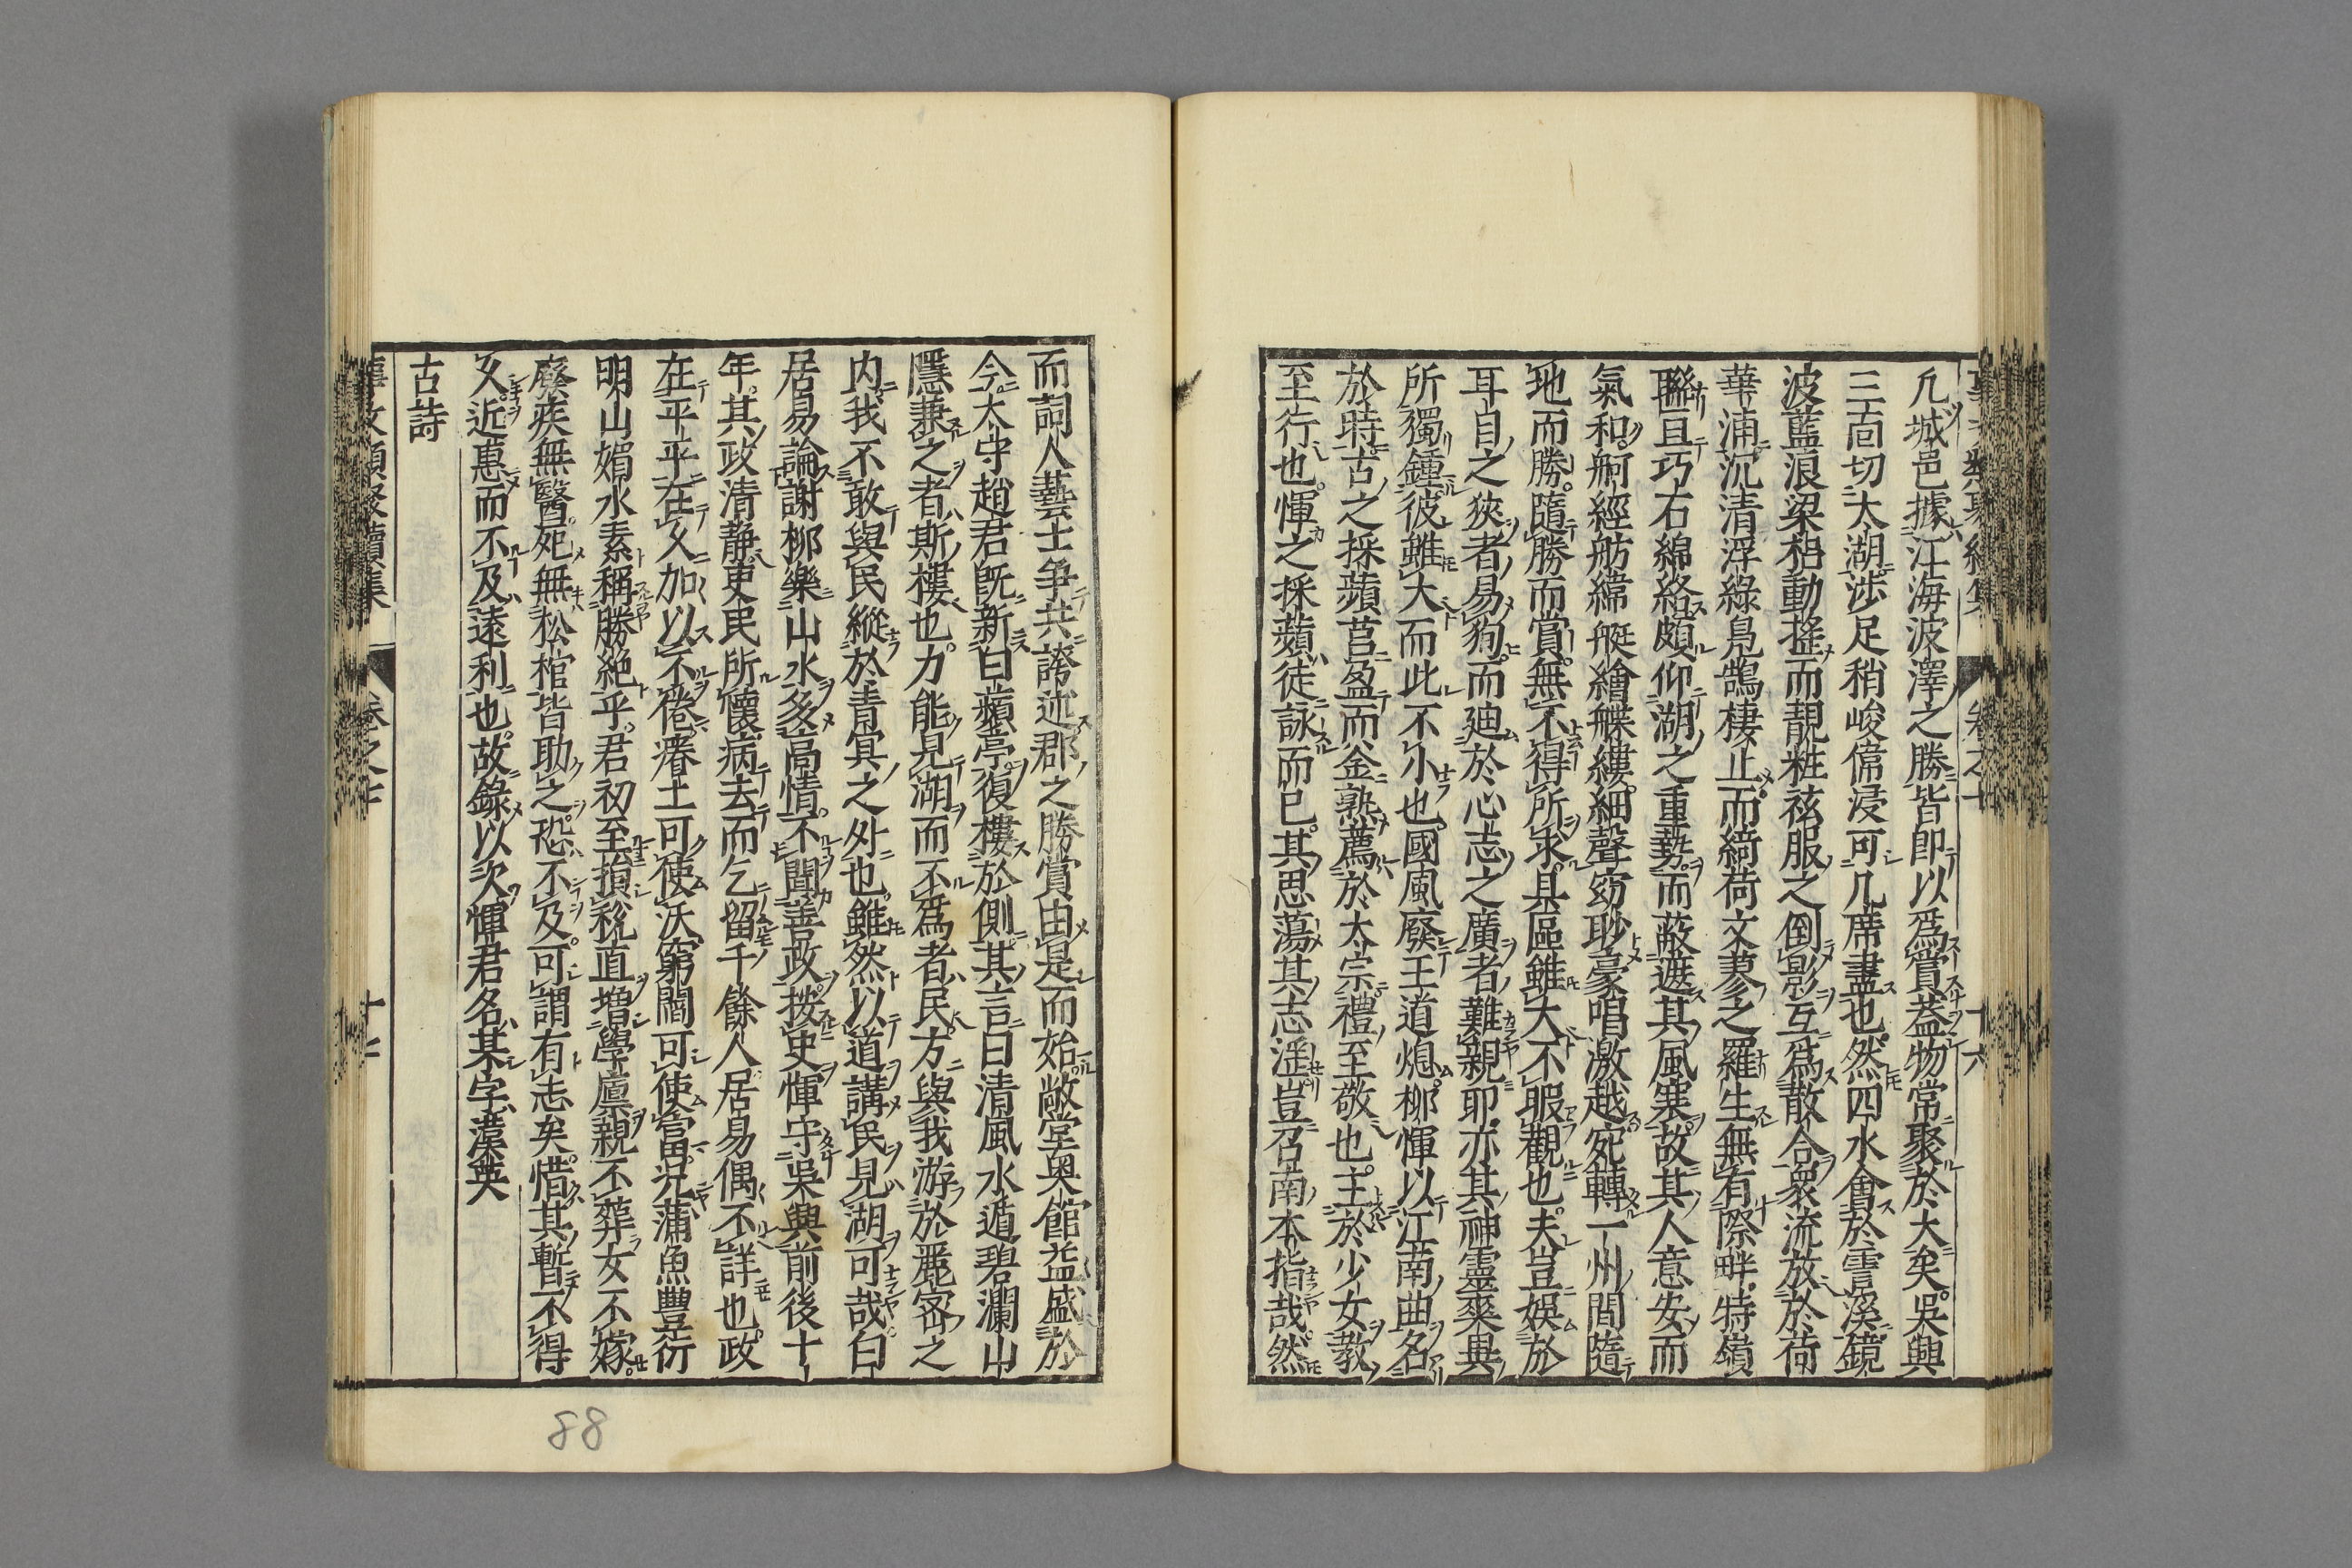 凡城邑據江海波澤之勝皆即以爲賞蓋物常聚於大矣吳興
三面切大湖渉足稍峻偹浸可几席盡也然四水會於霅溪鏡
波藍浪梁柖動搖而靚粧祛服之倒影互爲散合衆流放於荷
華浦沉清浮綠鳧鵠棲止而綺荷文蔆之羅生無有際畔特嶺
聯亘巧右綿絡頗仰湖之重㔟而蔽遮其風寒故其人意安而
氣和舸經舫緯艇繪艓縷細聲窈眇豪唱激越宛轉一州間隨
地而勝隨勝而賞無不得所求具區雖大不暇觀也夫豈娛於
耳目之狹者易狥而廸於心志之廣者難親耶亦其神靈來異
所獨鍾彼雖大而此不小也國風廢王道熄柳惲以江南曲名
於時古之採蘋莒盈而釜熟薦於大宗禮至敬也主於少女教
至行也惲之採蘋徒詠而已其思蕩其志淫豈召南本指哉然
而詞人藝士争共誇述郡之勝賞由是而始敞堂奥館益盛於
今大守趙君既新白蘋亭復樓於側其言曰清風水遁碧瀾山
隱兼之者斯樓也力能見湖而不爲者民方與我游於麗密之
内我不敢與民縱於青冥之外也雖然以道講民見湖可哉曰
居易論謝柳樂山水多高情不聞善政按史惲守吳興前後十
年其政清静吏民所懷病去而乞留千餘人居易偶不詳也政
在平平在久加以不倦瘠土可使沃窮閻可使富況蒲魚豐衍
明山媚水素稱勝絶乎君初至損稅直增學廩親不葬女不嫁
癈疾無醫死無松棺皆助之恐不及可謂有志矣惜其暫不得
久近惠而不及遠利也故錄以次惲君名某字漢英
古詩
卷之七
十七
88